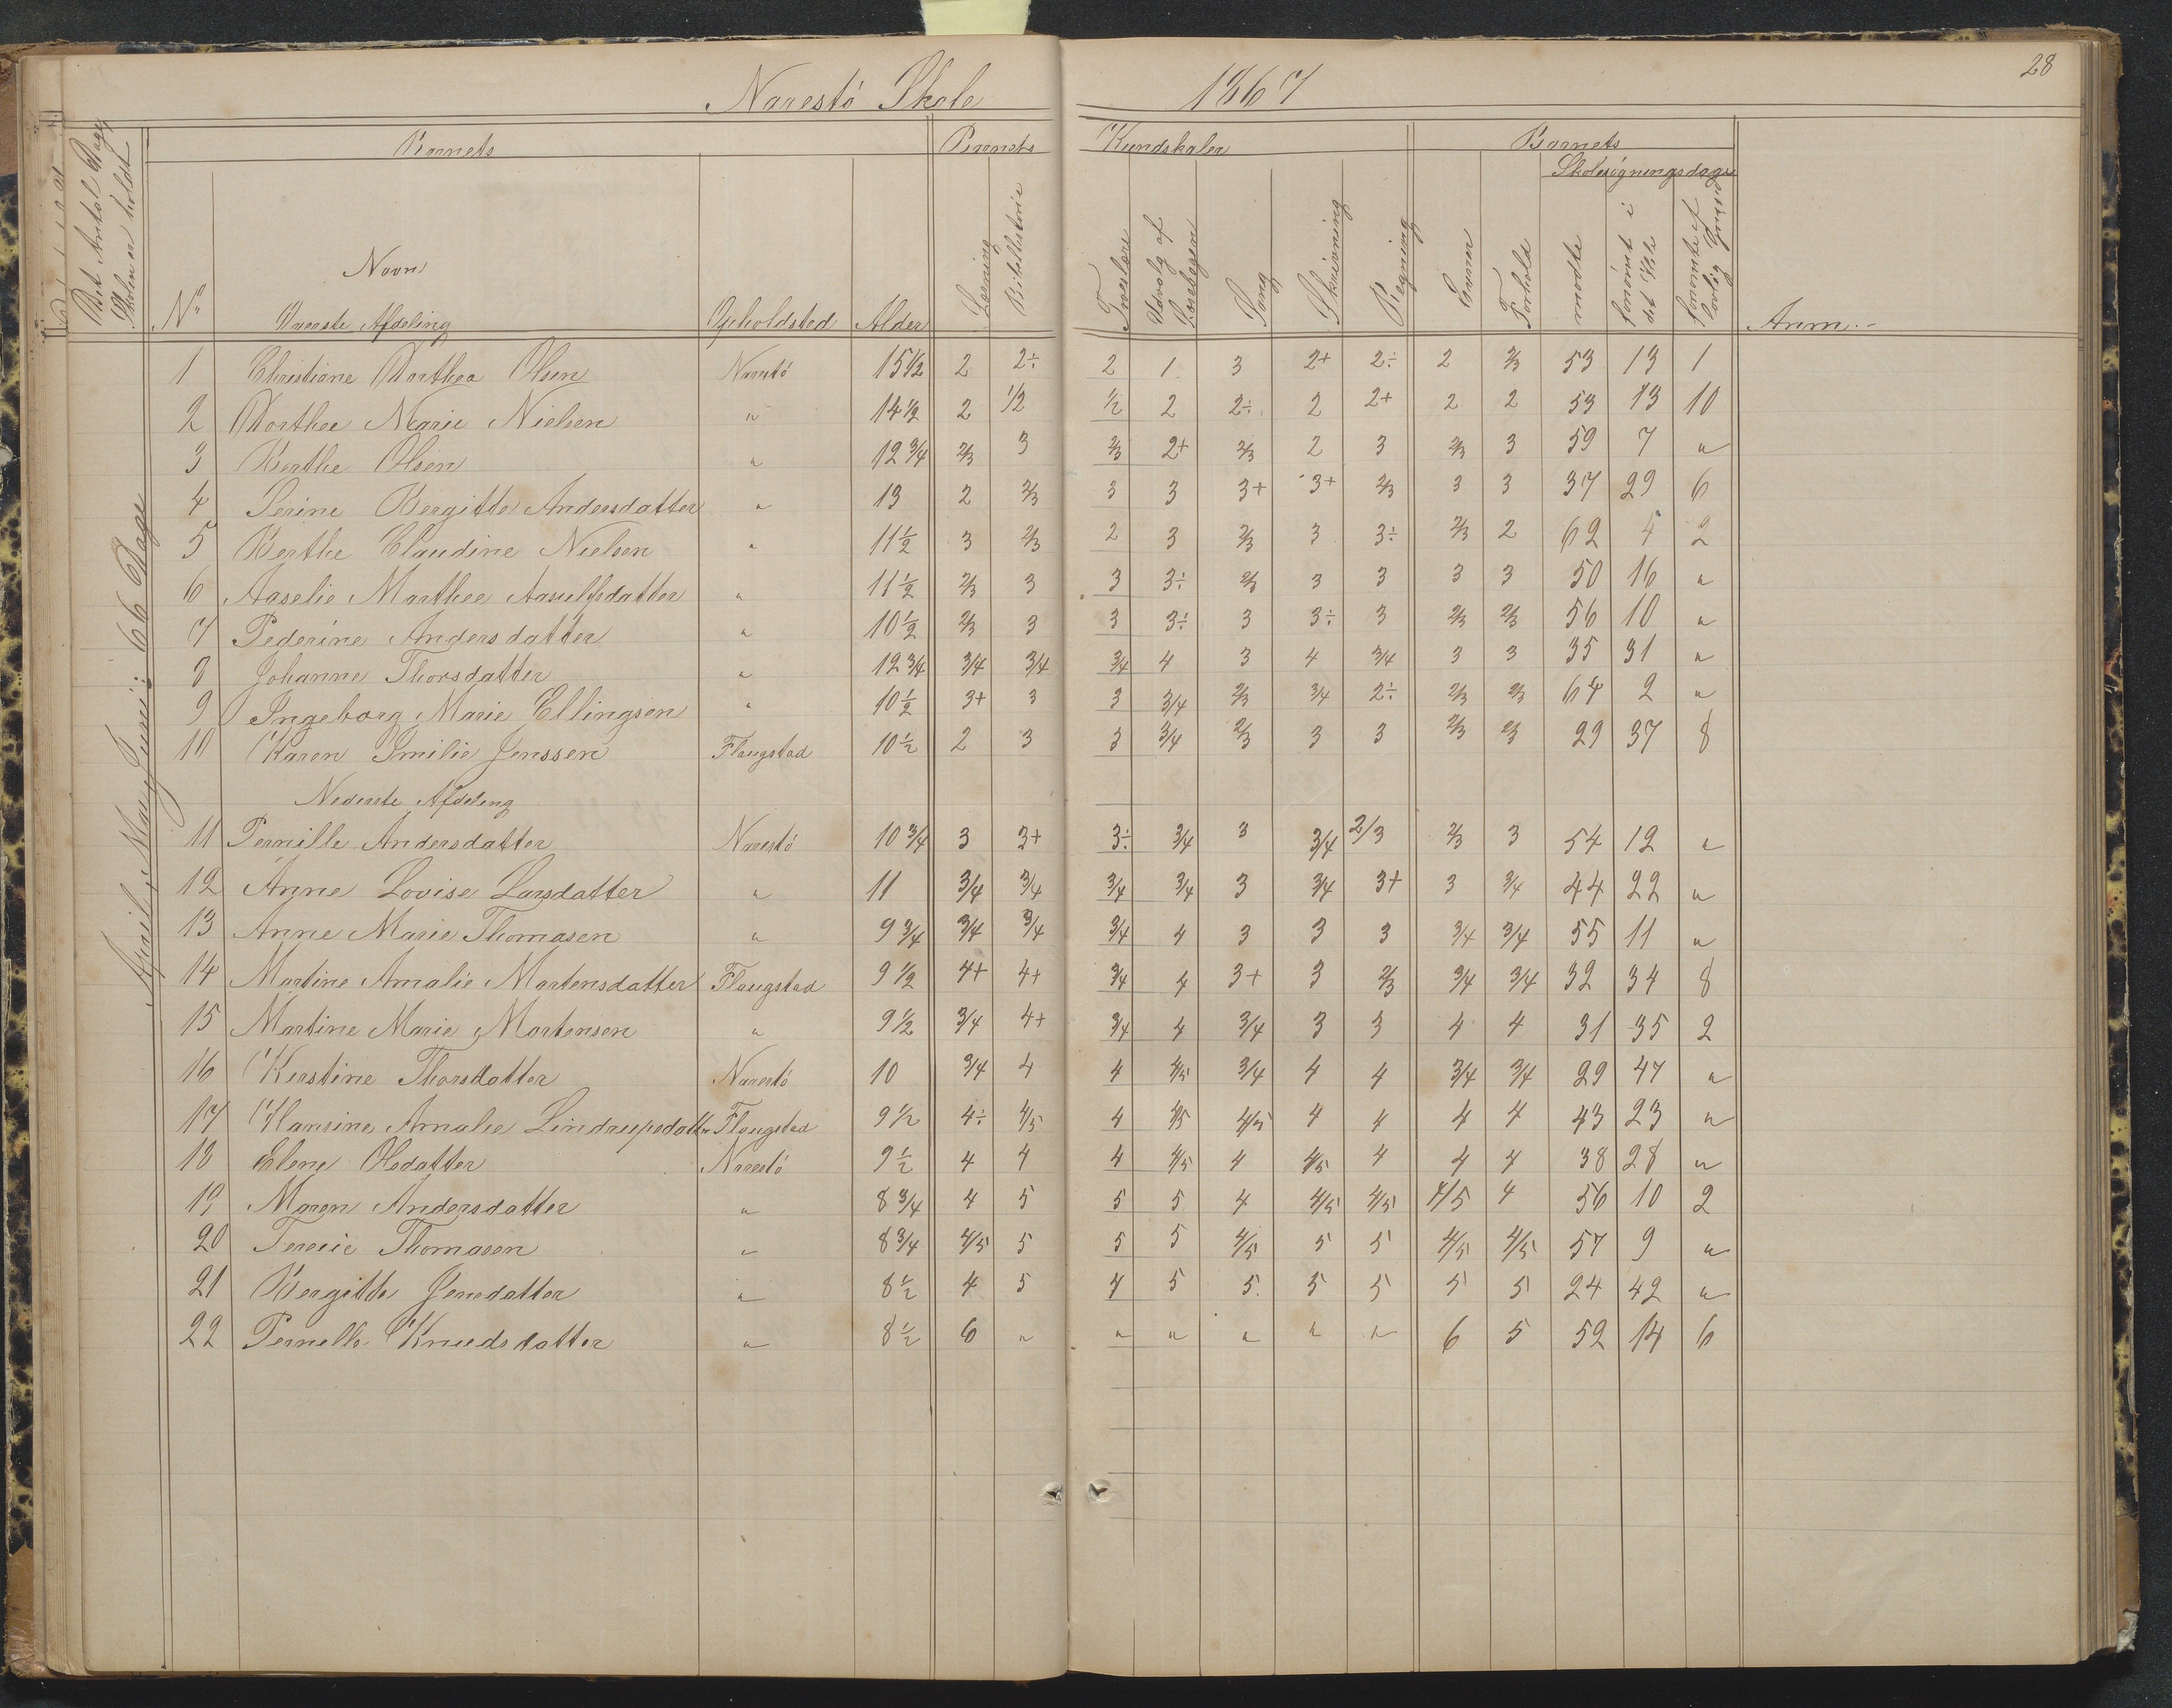 28
Narestö Skole 1867
Det Antal Dage Skolen er holdt
Barnets Barnets Kundskaber Barnets
Skolesögningsdage
Nº Navn Opholdsted Alder Læsning Bibelhistorie Troeslære Udvalg af Læsebogen Sang Skrivning Regning Evner Forhold mødte forsømt i det Hele forsømte af lovlig Grund Anm.-
Øverste Afdeling
April, May, Juni: 66 Dage
1 Christiane Dorthea Olsen Narestö 15 1/2 2 2÷ 2 1 3 2+ 2÷ 2 2/3 53 13 1
2 Dorthee Marie Nielsen " 14 1/2 2 1/2 1/2 2 2÷ 2 2+ 2 2 53 13 10
3 Berthe Olsen " 12 3/4 2/3 3 2/3 2+ 2/3 2 3 2/3 3 59 7 "
4 Serine Bergitte Andersdatter " 13 2 2/3 3 3 3+ 3+ 2/3 3 3 37 29 6
5 Berthe Claudine Nielsen " 11 1/2 3 2/3 2 3 2/3 3 3÷ 2/3 2 62 4 2
6 Aaselie Marthee Aasulfsdatter " 11 1/2 2/3 3 3 3÷ 2/3 3 3 3 3 50 16 "
7 Pederine Andersdatter " 10 1/2 2/3 3 3 3÷ 3 3÷ 3 2/3 2/3 56 10 "
8 Johanne Thorsdatter " 12 3/4 3/4 3/4 3/4 4 3 4 3/4 3 3 35 31 "
9 Ingeborg Marie Ellingsen " 10 1/2 3+ 3 3 3/4 2/3 3/4 2÷ 2/3 2/3 64 2 "
10 Karen Emilie Jenssen Flaugstad 10 1/2 2 3 3 3/4 2/3 3 3 2/3 2/3 29 37 8
Nederste Afdeling
11 Pernille Andersdatter Narestö 10 3/4 3 3+ 3÷ 3/4 3 3/4 2/3 2/3 3 54 12 "
12 Anne Lovise Larsdatter " 11 3/4 3/4 3/4 3/4 3 3/4 3+ 3 3/4 44 22 "
13 Anne Marie Thomasen " 9 3/4 3/4 3/4 3/4 4 3 3 3 3/4 3/4 55 11 "
14 Martine Amalie Mortensdatter Flaugstad 9 1/2 4+ 4+ 3/4 4 3+ 3 2/3 3/4 3/4 32 34 8
15 Martine Marie Mortensen " 9 1/2 3/4 4+ 3/4 4 3/4 3 3 4 4 31 35 2
16 Kirstine Thorsdatter Narestö 10 3/4 4 4 4/5 3/4 4 4 3/4 3/4 29 47 "
17 Hansine Amalie Lindrupsdatter Flaugstad 9 1/2 4÷ 4/5 4 4/5 4/5 4 4 4 4 43 23 "
18 Elene Olsdatter Narestö 9 1/2 4 4 4 4/5 4 4/5 4 4 4 38 28 "
19 Maren Andersdatter " 8 3/4 4 5 5 5 4 4/5 4/5 4/5 4 56 10 2
20 Teresie Thomasen " 8 3/4 4/5 5 5 5 4/5 5 5 4/5 4/5 57 9 "
21 Bergitte Jensdatter " 8 1/2 4 5 4 5 5 5 5 5 5 24 42 "
22 Pernille Knudsdatter " 8 1/2 6 " " " " " " 6 5 52 14 6